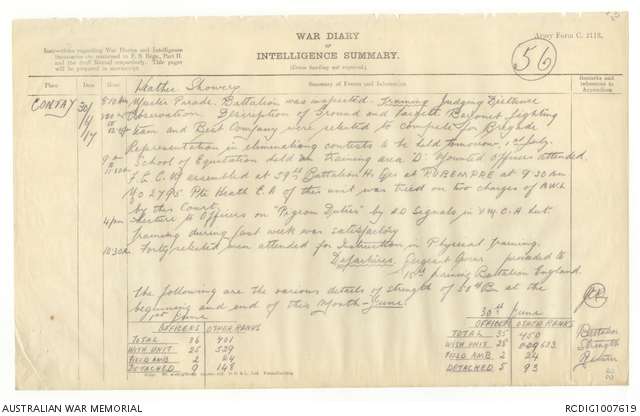 WAR DIARY
OF
INTELLIGENCE SUMMARY.
(Erase heading not required).
Army Form C. 2118.
56
Instructions regarding War Diaries and Intelligence
Summaries are contained in F. S. Regs., Part II.
and the Staff Manual respectively. Title pages
will be prepared in manuscript.
Place
Date
Hour
Summary of Events and Information
Remarks and
references to
Appendices
CONTAY 30/6/17
Weather Showery
Muster Parade. Battalion was inspected. Training Judging Distance
Observation Description of Ground and Targets. Bayonet fighting
team and Best Company were selected to compete for Brigade
Representation in eliminating contests to be held tomorrow, 1st July.
9 am School of Equitation held on training area D. Mounted Officers attended.
11.30am F.G.C.M. assembled at 59th Battalion H. Qrs at RUBEMPRE at 9.30 am
No 2795 Pte Heath E.A of this unit was tried on two charges of AWL
by this Court.
4pm Lecture to Officers on "Pigeon Duties" by AD Signals in Y.M.C.A. hut.
Training during past week was satisfactory
10.30am Forty selected men attended for Instruction in Physical Training.
Departures. Sergeant proceeded to
15th Training Battalion England.
The following are the various details of strength of 58th Bn at the
beginning and end of this Month - June
1st June
OFFICERS OTHER RANKS
TOTAL 36 701
WITH UNIT 25 529
FIELD AMB 2 24
DETACHED 9 148
30th June
OFFICERS OTHER RANKS
TOTAL 35 450
WITH UNIT 28 533
FIELD AMB 2 24
DETACHED 5 93
Battalion
Strength
Return
AUSTRALIAN WAR MEMORIAL
RCDIG1007619